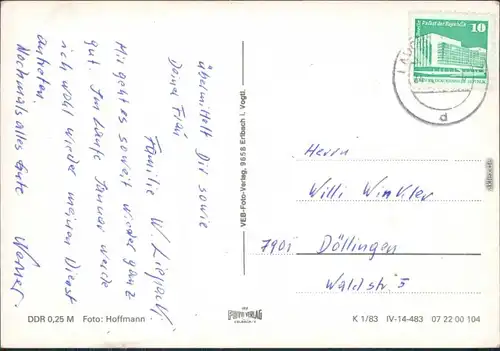 übermittelt Dir sowie
Deiner Frau
Familie W.
Mir geht es soweit wieder ganz
gut. Im Laufe Januar werde
ich wohl wieder meinen Dienst
antreten.
Nochmals alles Gute
Werner.
VEB-Foto-Verlag, 9658 Erlbach i. Vogtl.
10
Palast der Republik
DDR
d
Herrn
Willi Winkler
7901 Döllingen
Waldstr. 5
DDR 0,25 M Foto: Hoffmann
FOTO VERLAG
ERLBACH
K 1/83 IV-14-483 07 22 00 104